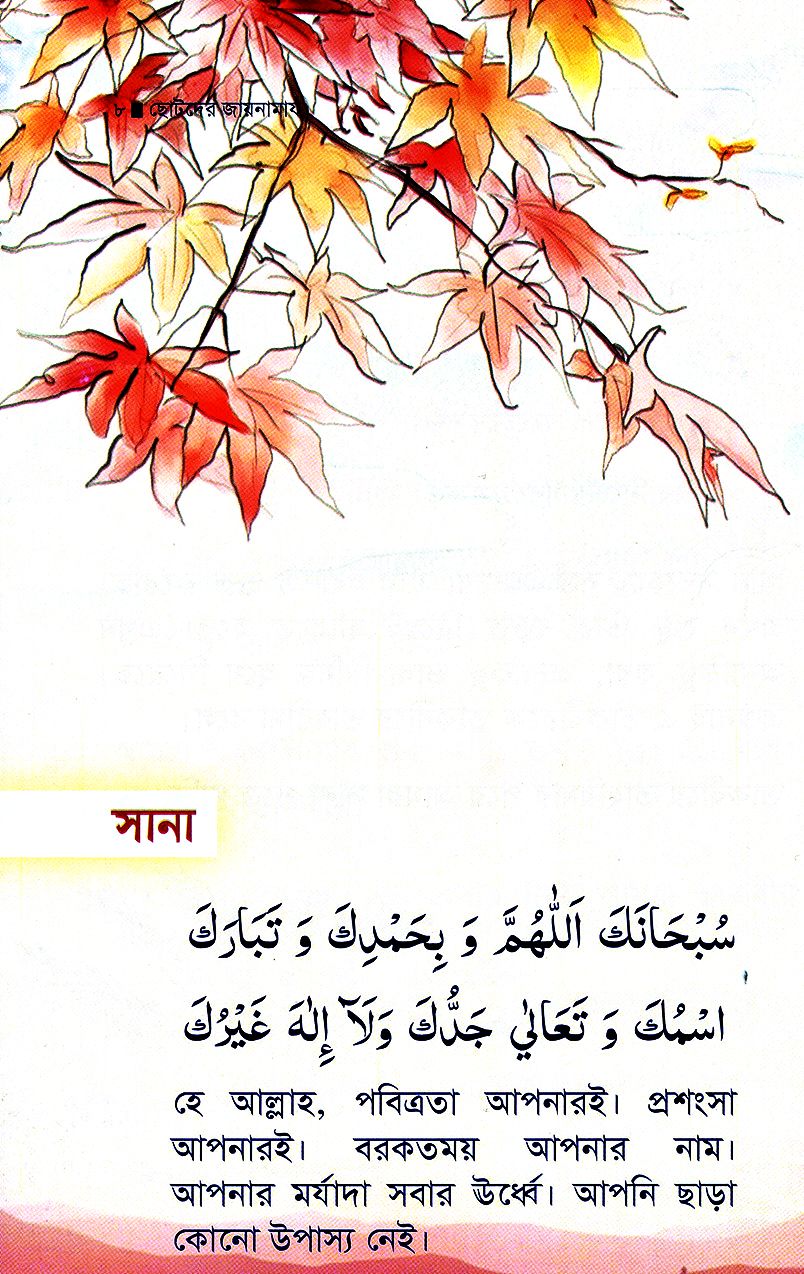 ৮ ■ ছোটদের জায়নামায
সানা
سُبْحَانَكَ اَللّٰهُمَّ وَ بِحَمْدِكَ وَ تَبَارَكَ
اسْمُكَ وَ تَعَالٰي جَدُّكَ وَلَآ إِلٰهَ غَيْرُكَ
হে আল্লাহ, পবিত্রতা আপনারই। প্রশংসা
আপনারই। বরকতময় আপনার নাম।
আপনার মর্যাদা সবার ঊর্ধ্বে। আপনি ছাড়া
কোনো উপাস্য নেই।